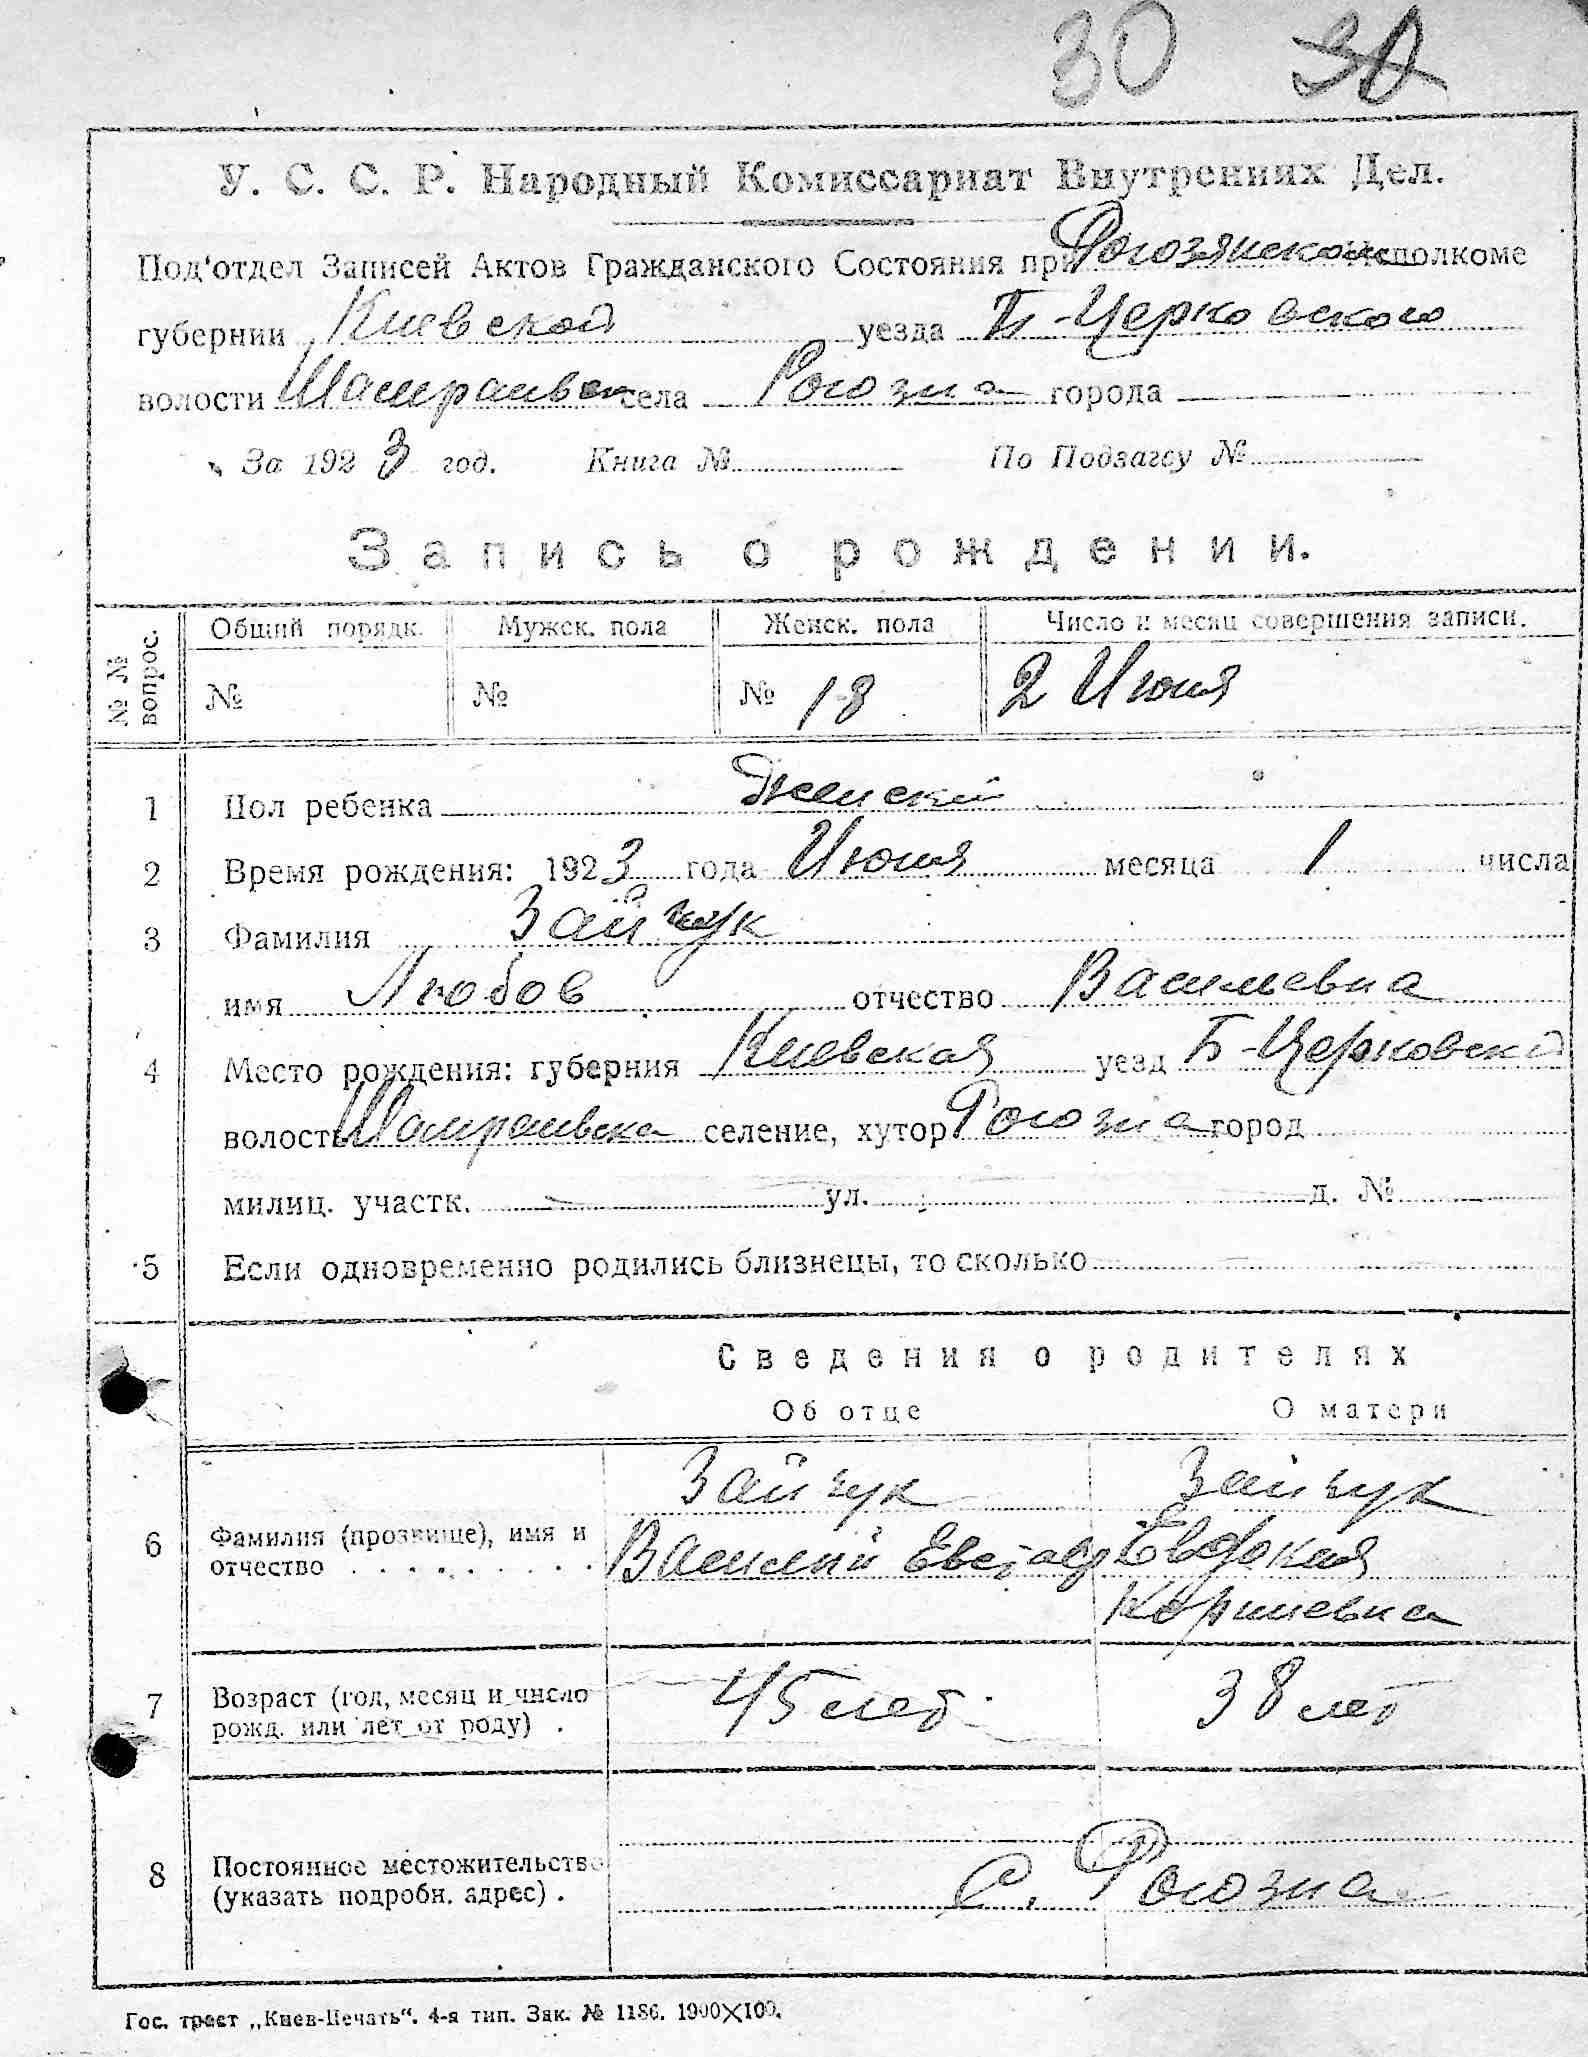 30 30
У. С. С. Р. Народный Комиссариат Внутренних Дел.
Под'отдел Записей Актов Гражданского Состояния при Рогозянском Исполкоме
губернии Киевской уезда Б-Церковского
волости Шамраивск села Рогозна города
За 1923 год. Книга № По Подзагсу №
Запись о рождении.
№ № вопрос. Общий порядк. Мужск. пола Женск. пола Число и месяц совершения записи.
№ № № 18 2 Июня
1 Пол ребенка Женский
2 Время рождения: 1923 года Июня месяца 1 числа
3 Фамилия Зайчук
имя Любов отчество Васильевна
4 Место рождения: губерния Киевская уезд Б-Церковский
волость Шамраивска селение, хутор Рогозна город
милиц. участк. ул. д. №
5 Если одновременно родились близнецы, то сколько
Сведения о родителях
Об отце О матери
Зайчук Зайчук
6 Фамилия (прозвище), имя и
отчество Василий Евдокия
Корниевна
7 Возраст (год, месяц и число
рожд. или лет от роду) . 45 лет 38 лет
8 Постоянное местожительство
(указать подробн. адрес) . С. Рогозна
Гос. трест „Киев-Печать“. 4-я тип. Зак. № 1186. 1900×100.